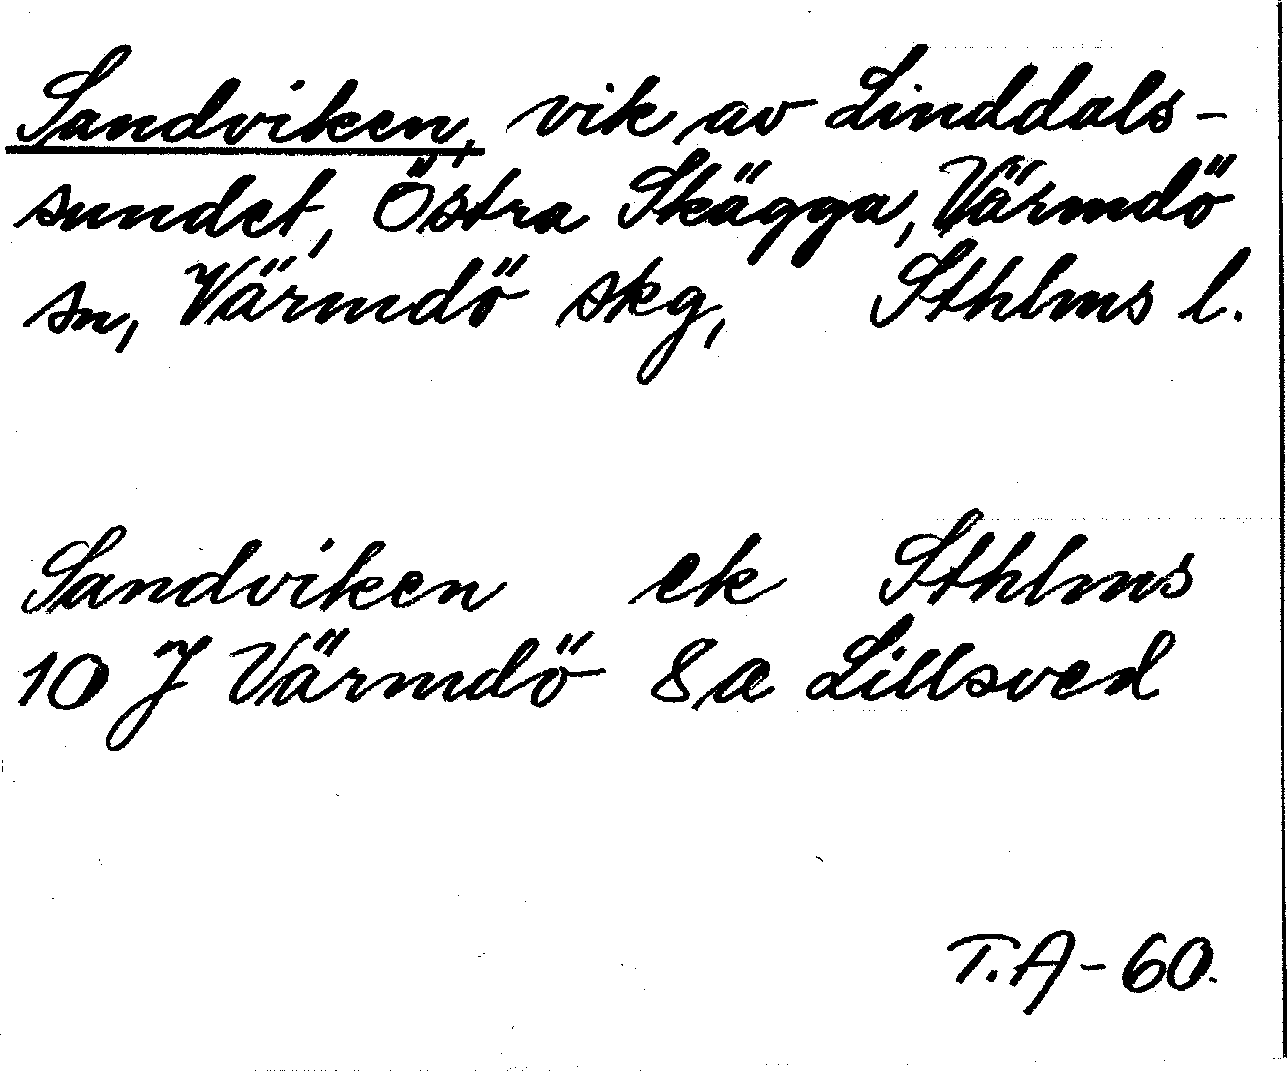 Sandviken, vik av Linddals-
sundet, Östra Skägga, Värmdö
sn, Värmdö skg, Sthlms l.
Sandviken ek Sthlms
10 J Värmdö 8a Lillsved
T.A-60.